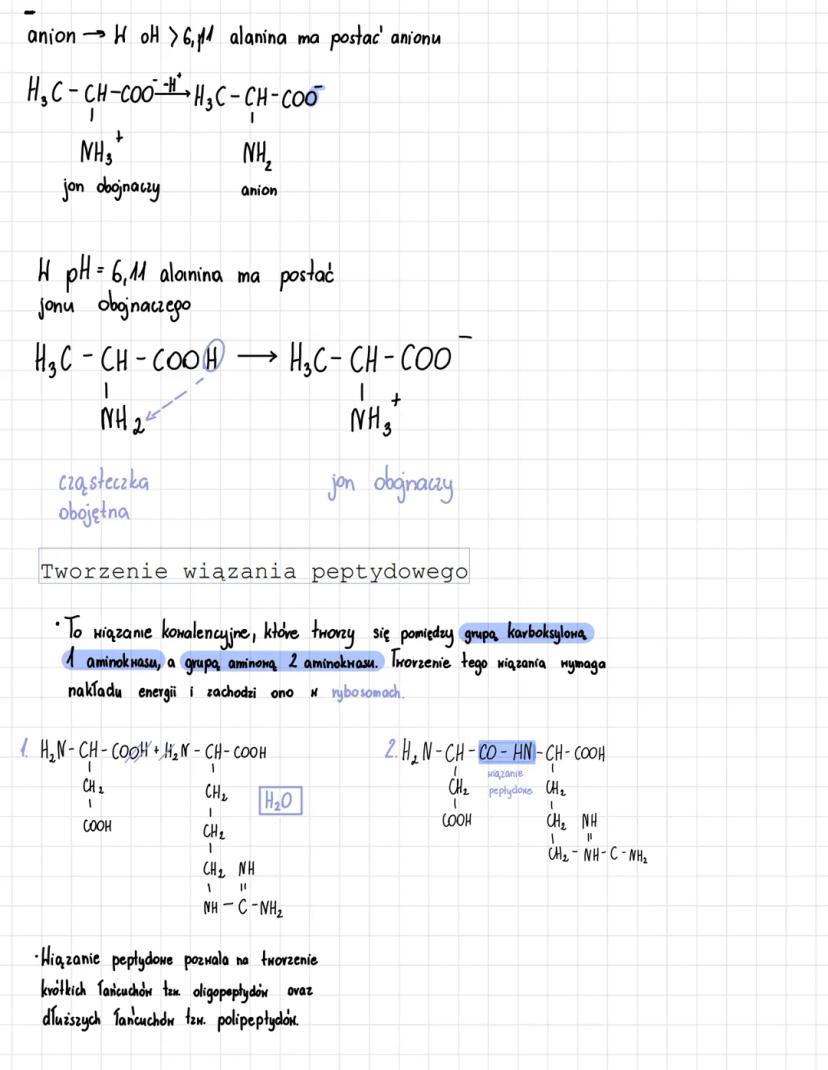 anion → W pH > 6,11 alanina ma postać anionu
H₃C - CH - COO⁻ -H⁺→ H₃C - CH - COO⁻
NH₃⁺ NH₂
jon obojnaczy anion
W pH = 6,11 alanina ma postać
jonu obojnaczego
H₃C - CH - COOH → H₃C - CH - COO⁻
NH₂ NH₃⁺
cząsteczka jon obojnaczy
obojętna
Tworzenie wiązania peptydowego
• To wiązanie kowalencyjne, które tworzy się pomiędzy grupą karboksylową
1 aminokwasu, a grupą aminową 2 aminokwasu. Tworzenie tego wiązania wymaga
nakładu energii i zachodzi ono w rybosomach.
1. H₂N - CH - COOH + H₂N - CH - COOH
CH₂ CH₂ H₂O
COOH CH₂
CH₂ NH
NH - C - NH₂
2. H₂N - CH - CO - HN - CH - COOH
wiązanie
CH₂ peptydowe CH₂
COOH CH₂ NH
CH₂ - NH - C - NH₂
• Wiązanie peptydowe pozwala na tworzenie
krótkich łańcuchów tzw. oligopeptydów oraz
dłuższych łańcuchów tzw. polipeptydów.